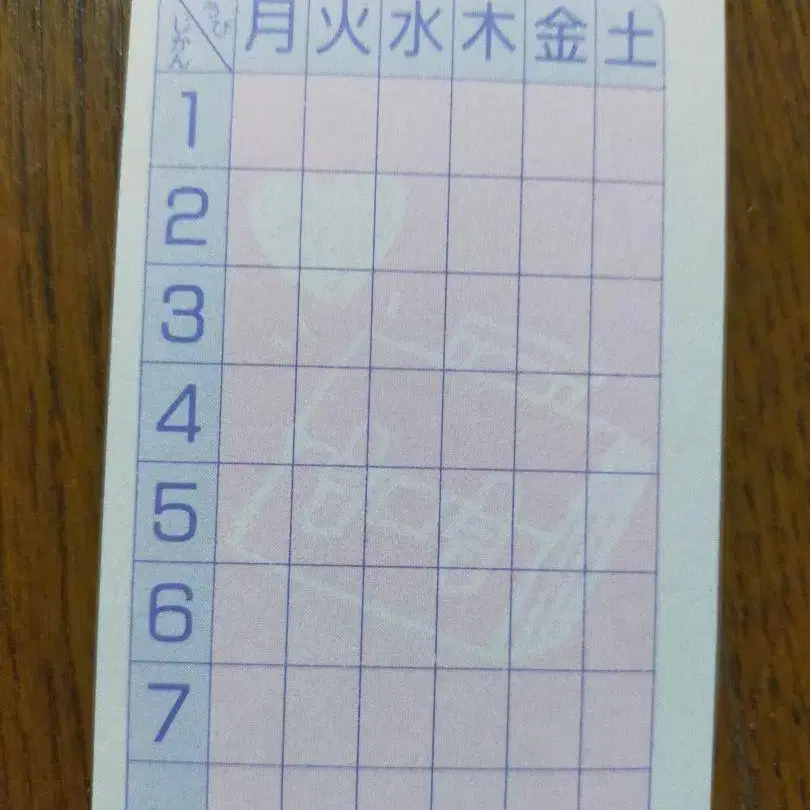 ようび
じかん
月 火 水 木 金 土
1
2
3
4
5
6
7